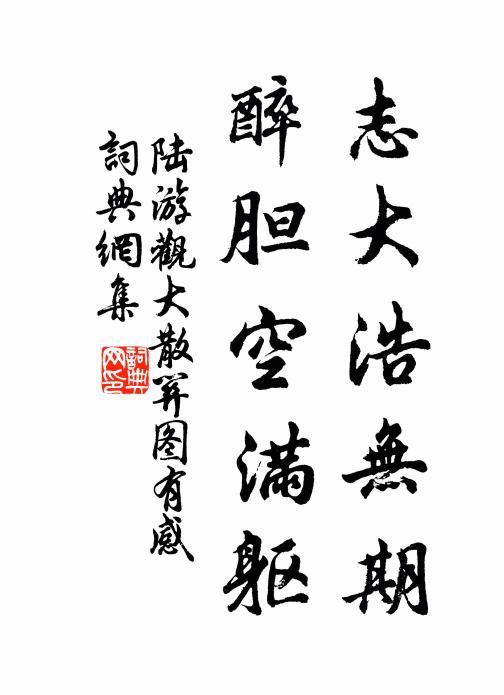 志大浩無期
醉胆空满躯
陆游觀大散関图有感
詞典網集
詞典网印